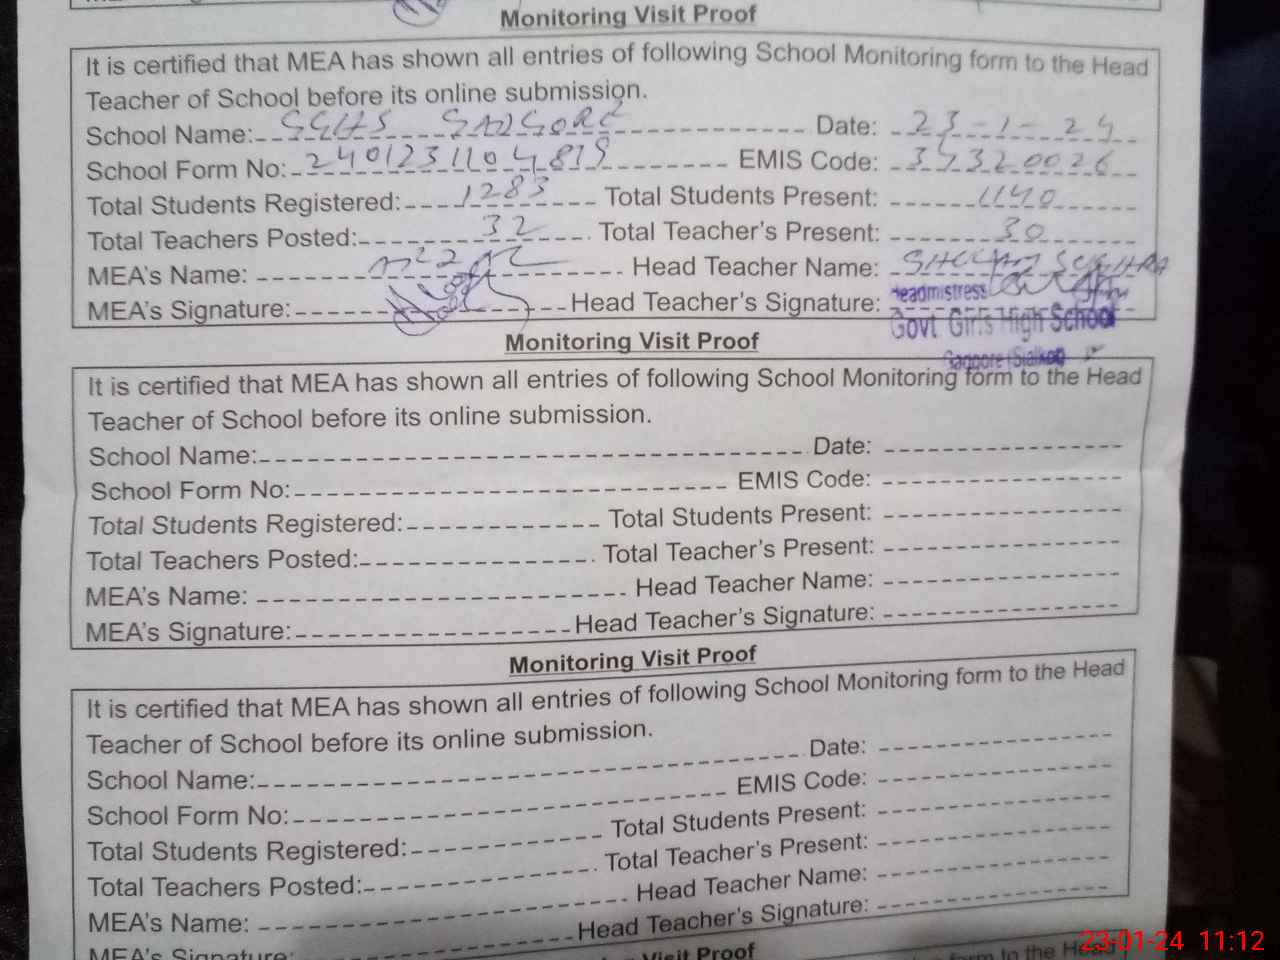 Monitoring Visit Proof
It is certified that MEA has shown all entries of following School Monitoring form to the Head
Teacher of School before its online submission.
School Name: GGHS Date: 23-1-24
School Form No: 2401231104819 EMIS Code: 34320026
Total Students Registered: 1283 Total Students Present: 1140
Total Teachers Posted: 32 Total Teacher's Present: 30
MEA's Name: Head Teacher Name: SUGHRA
MEA's Signature: Head Teacher's Signature:
Headmistress
Govt. Girls High School
(Sialkot)
Monitoring Visit Proof
It is certified that MEA has shown all entries of following School Monitoring form to the Head
Teacher of School before its online submission.
School Name: Date:
School Form No: EMIS Code:
Total Students Registered: Total Students Present:
Total Teachers Posted: Total Teacher's Present:
MEA's Name: Head Teacher Name:
MEA's Signature: Head Teacher's Signature:
Monitoring Visit Proof
It is certified that MEA has shown all entries of following School Monitoring form to the Head
Teacher of School before its online submission.
School Name: Date:
School Form No: EMIS Code:
Total Students Registered: Total Students Present:
Total Teachers Posted: Total Teacher's Present:
MEA's Name: Head Teacher Name:
MEA's Signature: Head Teacher's Signature:
Visit Proof
form to the Head
23-01-24 11:12